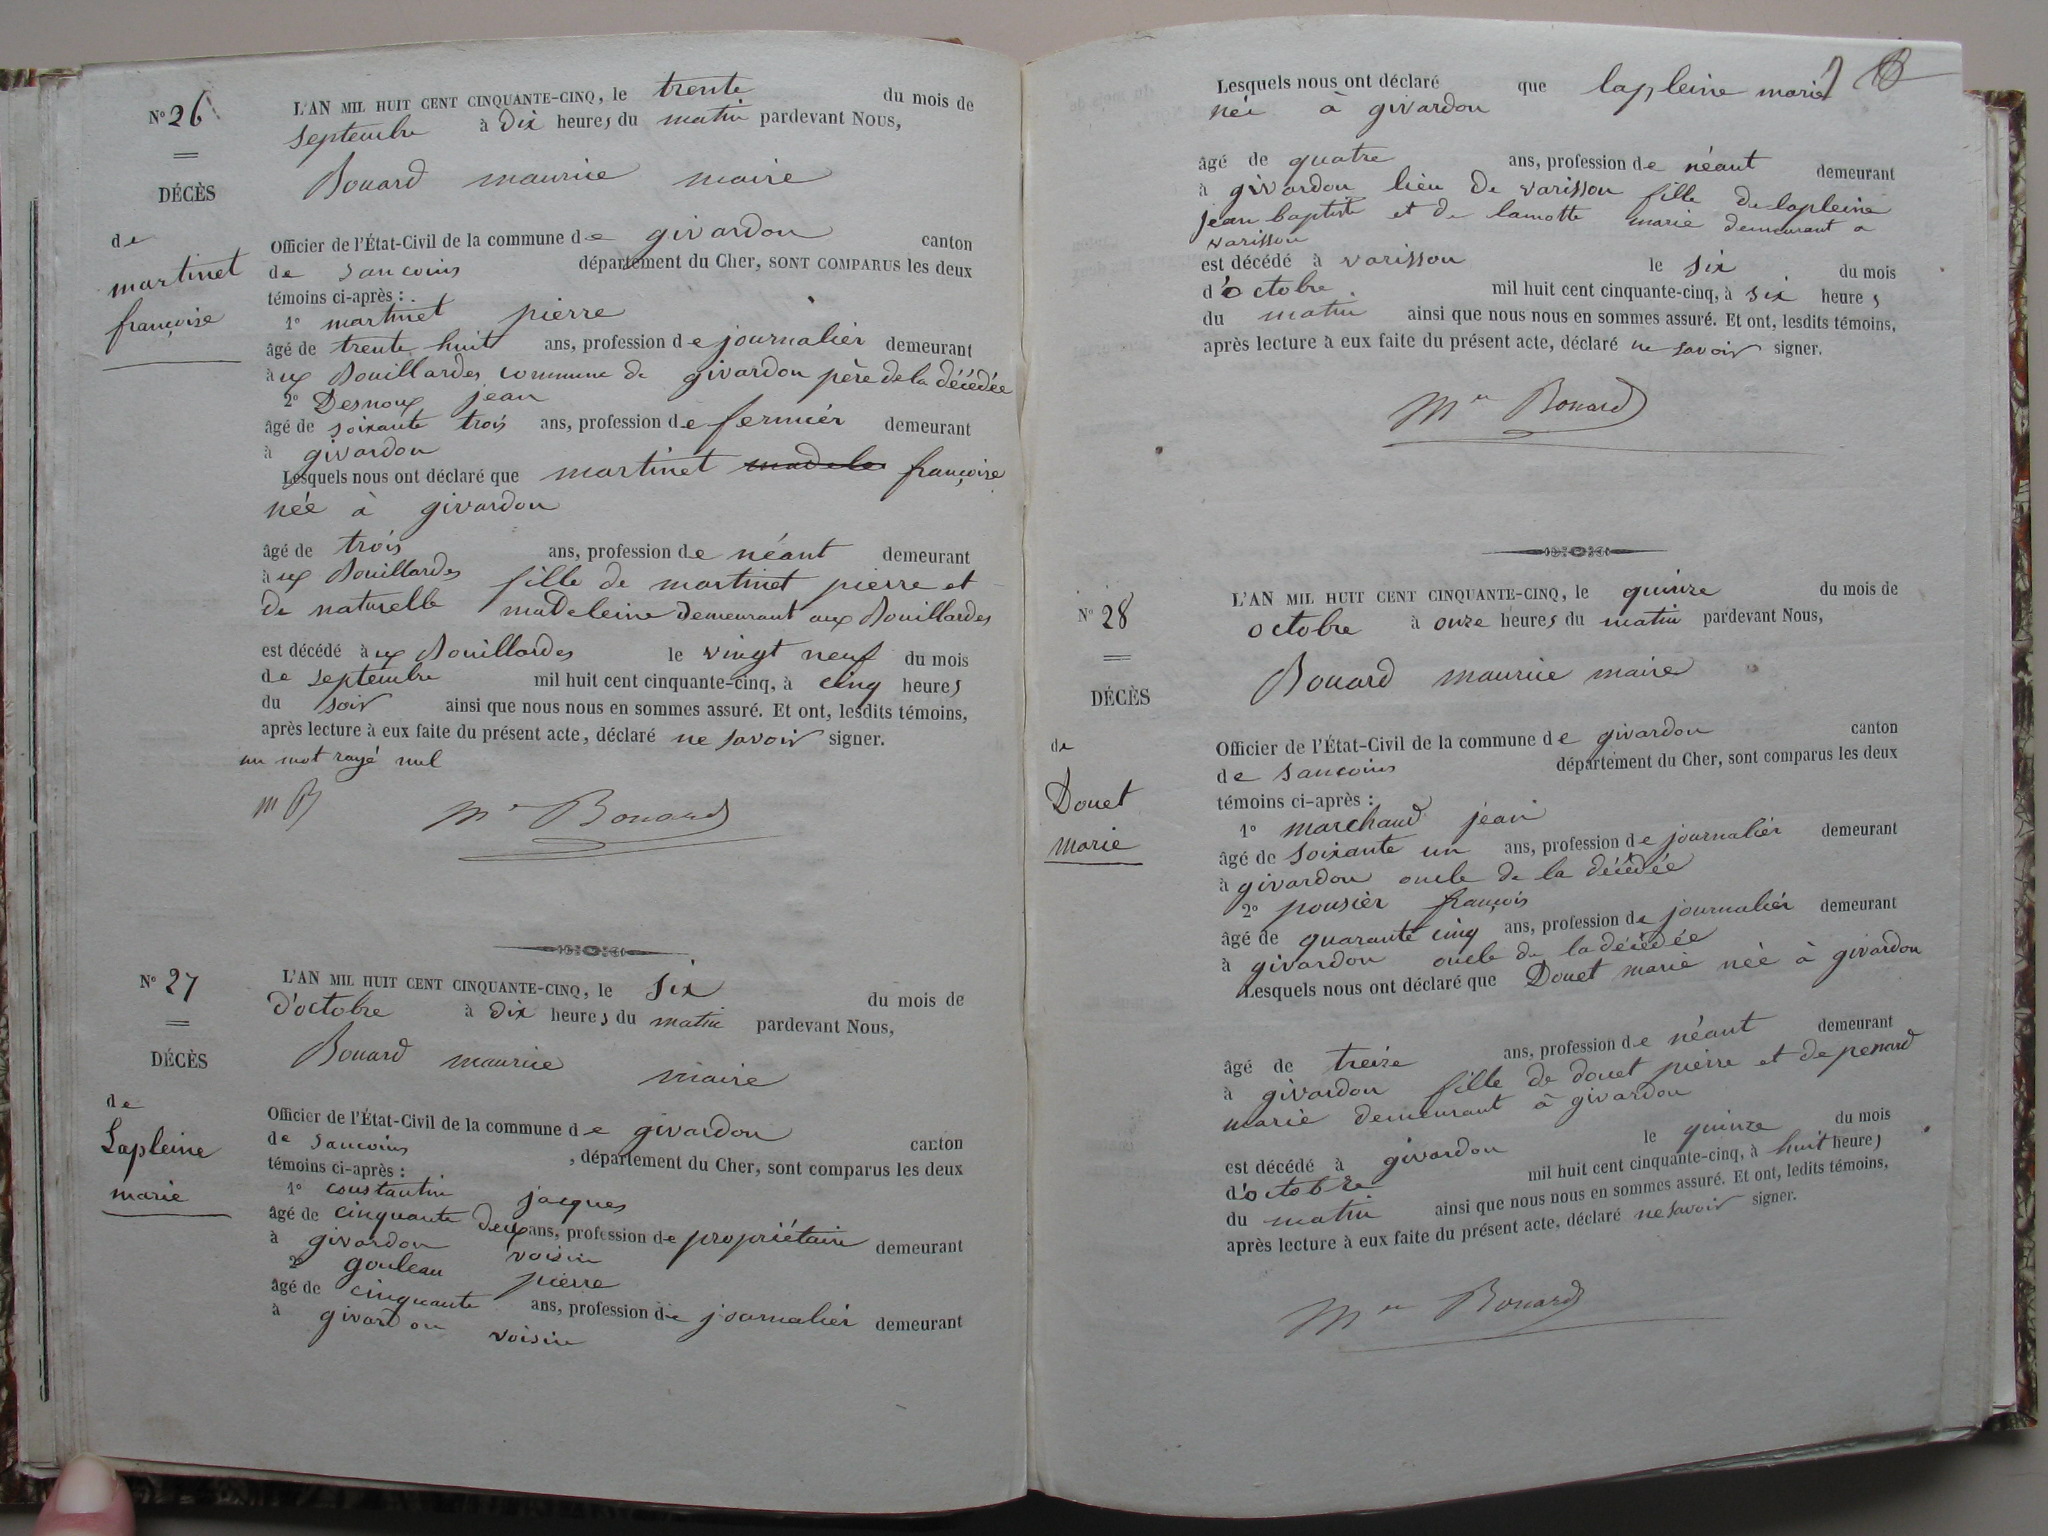 N° 26
DÉCÈS
de
martinet
françoise
L'AN MIL HUIT CENT CINQUANTE-CINQ, le trente du mois de
septembre à dix heures du matin pardevant NOUS,
Bouard maurice maire
Officier de l'État-Civil de la commune de givardon canton
de sancoins département du Cher, SONT COMPARUS les deux
témoins ci-après :
1° martinet pierre
âgé de trente huit ans, profession de journalier demeurant
aux Bouillardes commune de givardon père de la décédée
2° Desnoux jean
âgé de soixante trois ans, profession de fermier demeurant
à givardon
Lesquels nous ont déclaré que martinet françoise
née à givardon
âgé de trois ans, profession de néant demeurant
aux Bouillardes fille de martinet pierre et
de naturelle madeleine demeurant aux Bouillardes
est décédé aux Bouillardes le vingt neuf du mois
de septembre mil huit cent cinquante-cinq, à cinq heures
du soir ainsi que nous nous en sommes assuré. Et ont, lesdits témoins,
après lecture à eux faite du présent acte, déclaré ne savoir signer.
un mot rayé nul
m B
Mce Bouard
N° 27
DÉCÈS
de
Lapleine
marie
L'AN MIL HUIT CENT CINQUANTE-CINQ, le six du mois de
d'octobre à dix heures du matin pardevant Nous,
Bouard maurice maire
Officier de l'État-Civil de la commune de givardon canton
de sancoins, département du Cher, sont comparus les deux
témoins ci-après :
1° constantin jacques
âgé de cinquante deux ans, profession de propriétaire demeurant
à givardon voisin
2° gouleau pierre
âgé de cinquante ans, profession de journalier demeurant
à givardon voisin
Lesquels nous ont déclaré que lapleine marie
née à givardon
âgé de quatre ans, profession de néant demeurant
à givardon lieu de varissou fille de lapleine
jean baptiste et de lamotte marie demeurant a
varissou
est décédé à varissou le six du mois
d'octobre mil huit cent cinquante-cinq, à six heures
du matin ainsi que nous nous en sommes assuré. Et ont, lesdits témoins,
après lecture à eux faite du présent acte, déclaré ne savoir signer.
Mce Bouard
N° 28
DÉCÈS
de
Douet
marie
L'AN MIL HUIT CENT CINQUANTE-CINQ, le quinze du mois de
octobre à onze heures du matin pardevant Nous,
Bouard maurice maire
Officier de l'État-Civil de la commune de givardon canton
de sancoins département du Cher, sont comparus les deux
témoins ci-après :
1° marchaud jean
âgé de soixante un ans, profession de journalier demeurant
à givardon oncle de la décédée
2° pousier françois
âgé de quarante cinq ans, profession de journalier demeurant
à givardon oncle de la décédée
Lesquels nous ont déclaré que Douet marie née à givardon
âgé de treize ans, profession de néant demeurant
à givardon fille de douet pierre et de penard
marie demeurant à givardon
est décédé à givardon le quinze du mois
d'octobre mil huit cent cinquante-cinq, à huit heures
du matin ainsi que nous nous en sommes assuré. Et ont, ledits témoins,
après lecture à eux faite du présent acte, déclaré ne savoir signer.
Mce Bouard